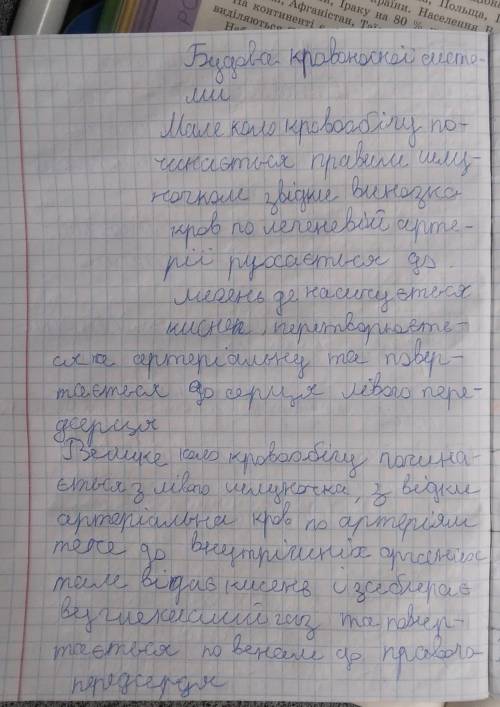 Польща,
країни,
Афганістан,
Іраку на 80 %
На континенті є
виділяються
Населення
Будова кровоносної систе-
ми
Мале коло кровообігу по-
чинається правим шлу-
ночком звідки винозка
кров по легеневій арте-
рії рухається до
легень де насичується
киснем перетворюєте-
ся на артеріальну та повер-
тається до серця лівого пере-
дсердя
Велике коло кровообігу почина-
ється з лівого шлуночка, з відки
артеріальна кров по артеріям
тече до внутрішніх органів
там віддає кисень і забирає
вуглекислий газ та повер-
тається по венам до правого
передсердя